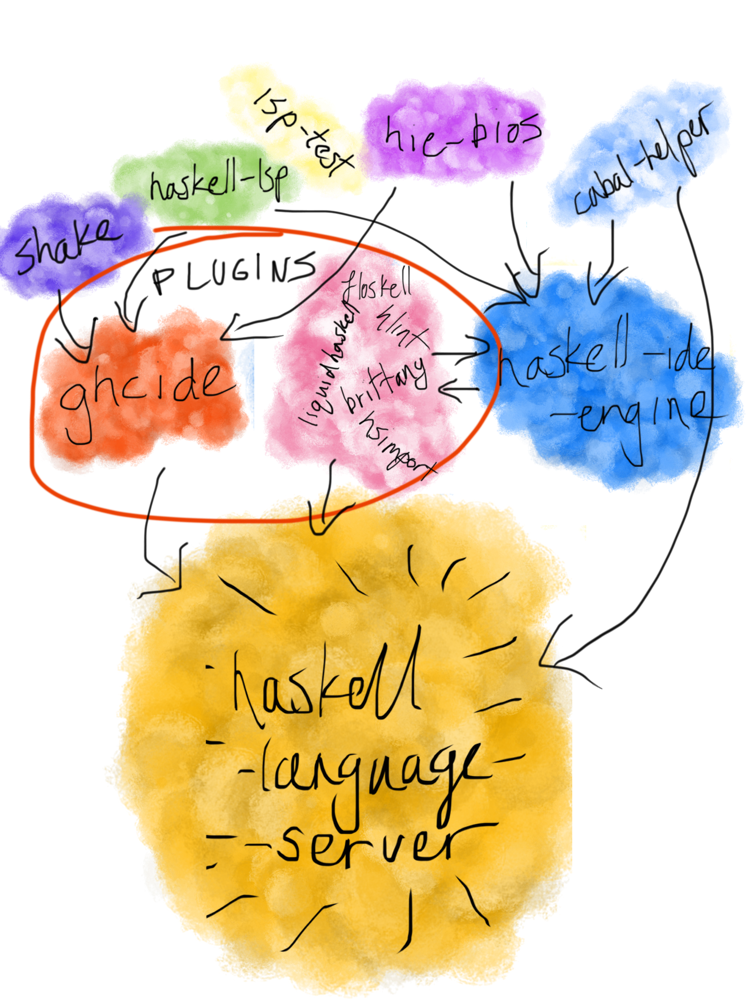 lsp-test
hie-bios
cabal-helper
haskell-lsp
shake
PLUGINS
floskell
hlint
liquidhaskell
brittany
hsimport
ghcide
haskell-ide
-engine
haskell
-language-
-server